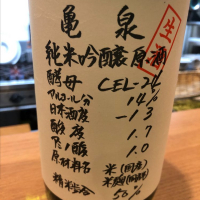 亀泉
生
純米吟醸原酒
酵母 CEL-24
アルコール分 14%
日本酒度 -13
酸度 1.7
アミノ酸 1.0
原材料名 米(国産)
米麹(国産米)
精米歩合 50%